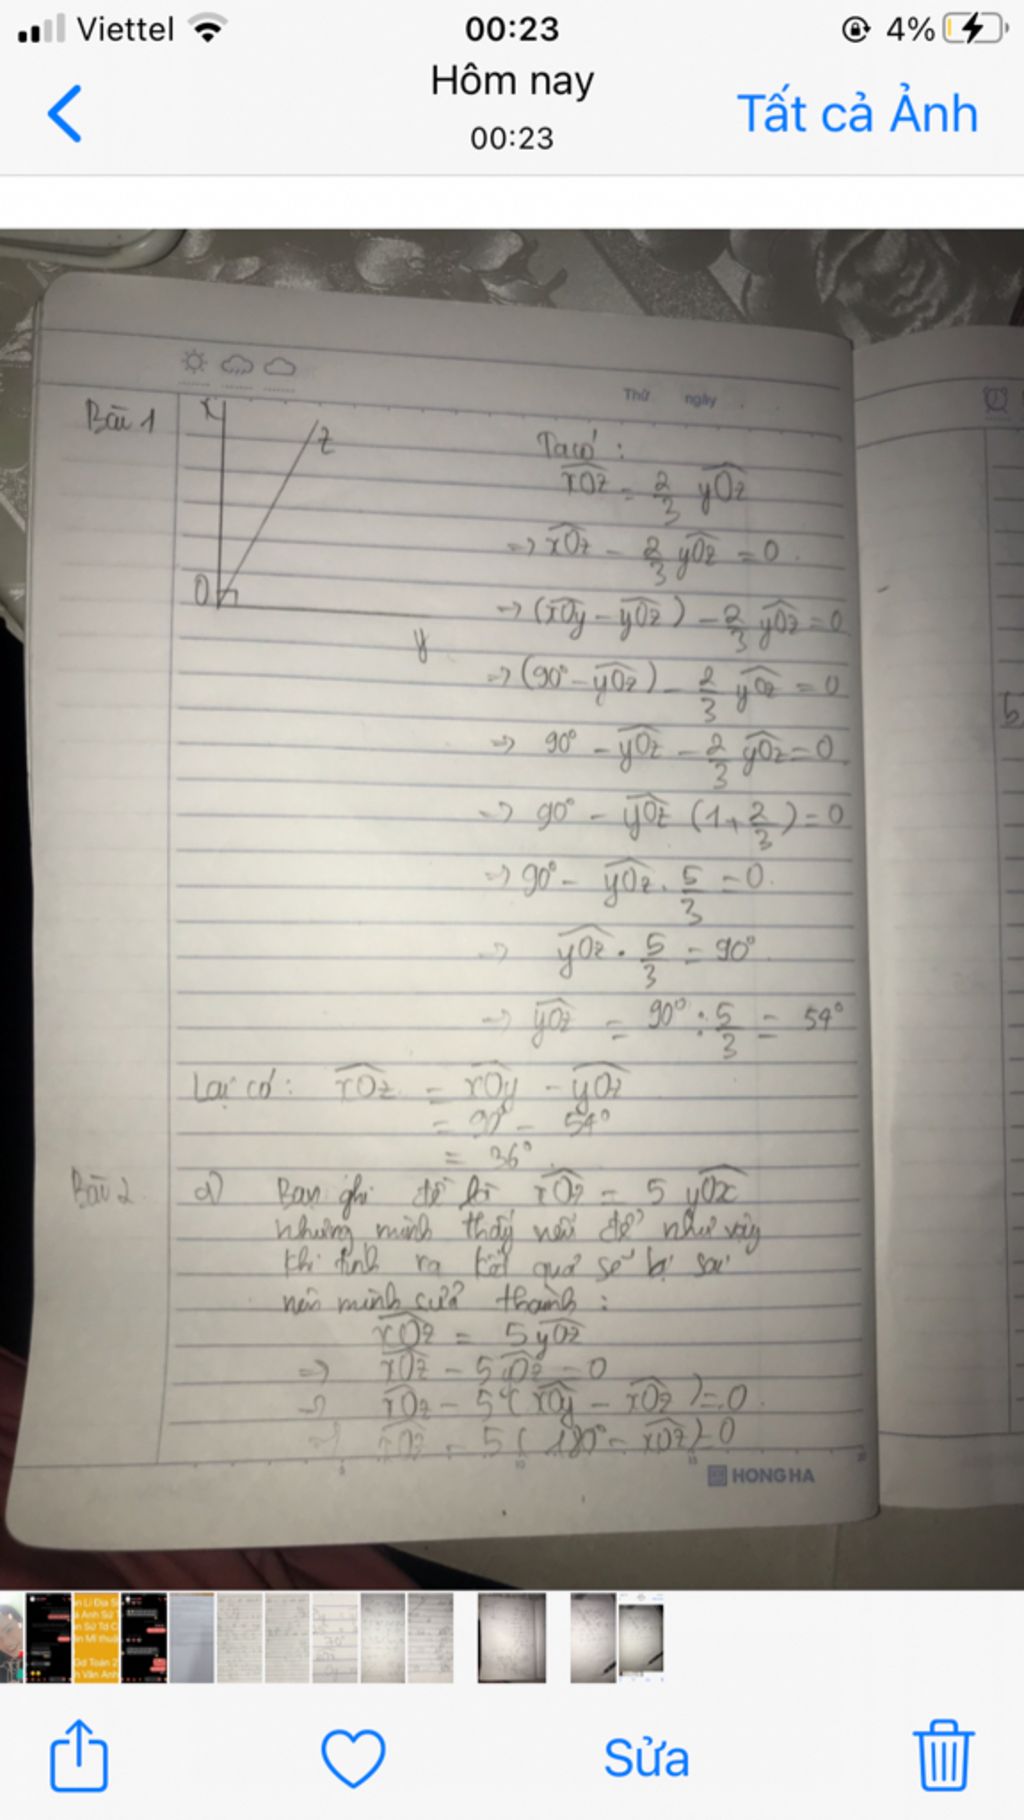 Viettel
00:23
4%
Hôm nay
00:23
Tất cả Ảnh
Thứ ngày
Bài 1
x
z
O
y
Ta có :
xOz = 2/3 yOz
=> xOz - 2/3 yOz = 0
=> (xOy - yOz) - 2/3 yOz = 0
=> (90° - yOz) - 2/3 yOz = 0
=> 90° - yOz - 2/3 yOz = 0
=> 90° - yOz (1 + 2/3) = 0
=> 90° - yOz . 5/3 = 0
=> yOz . 5/3 = 90°
=> yOz = 90° : 5/3 = 54°
Lại có : xOz = xOy - yOz
= 90° - 54°
= 36°
Bài 2 a) Bạn ghi đề là xOz = 5 yOx
nhưng mình thấy nếu đề như vậy
khi tính ra kết quả sẽ bị sai
nên mình sửa thành :
xOz = 5 yOz
=> xOz - 5 yOz = 0
=> xOz - 5 (xOy - xOz) = 0
=> xOz - 5 (180° - xOz) = 0
b
5 10 15 20
HONG HA
Sửa